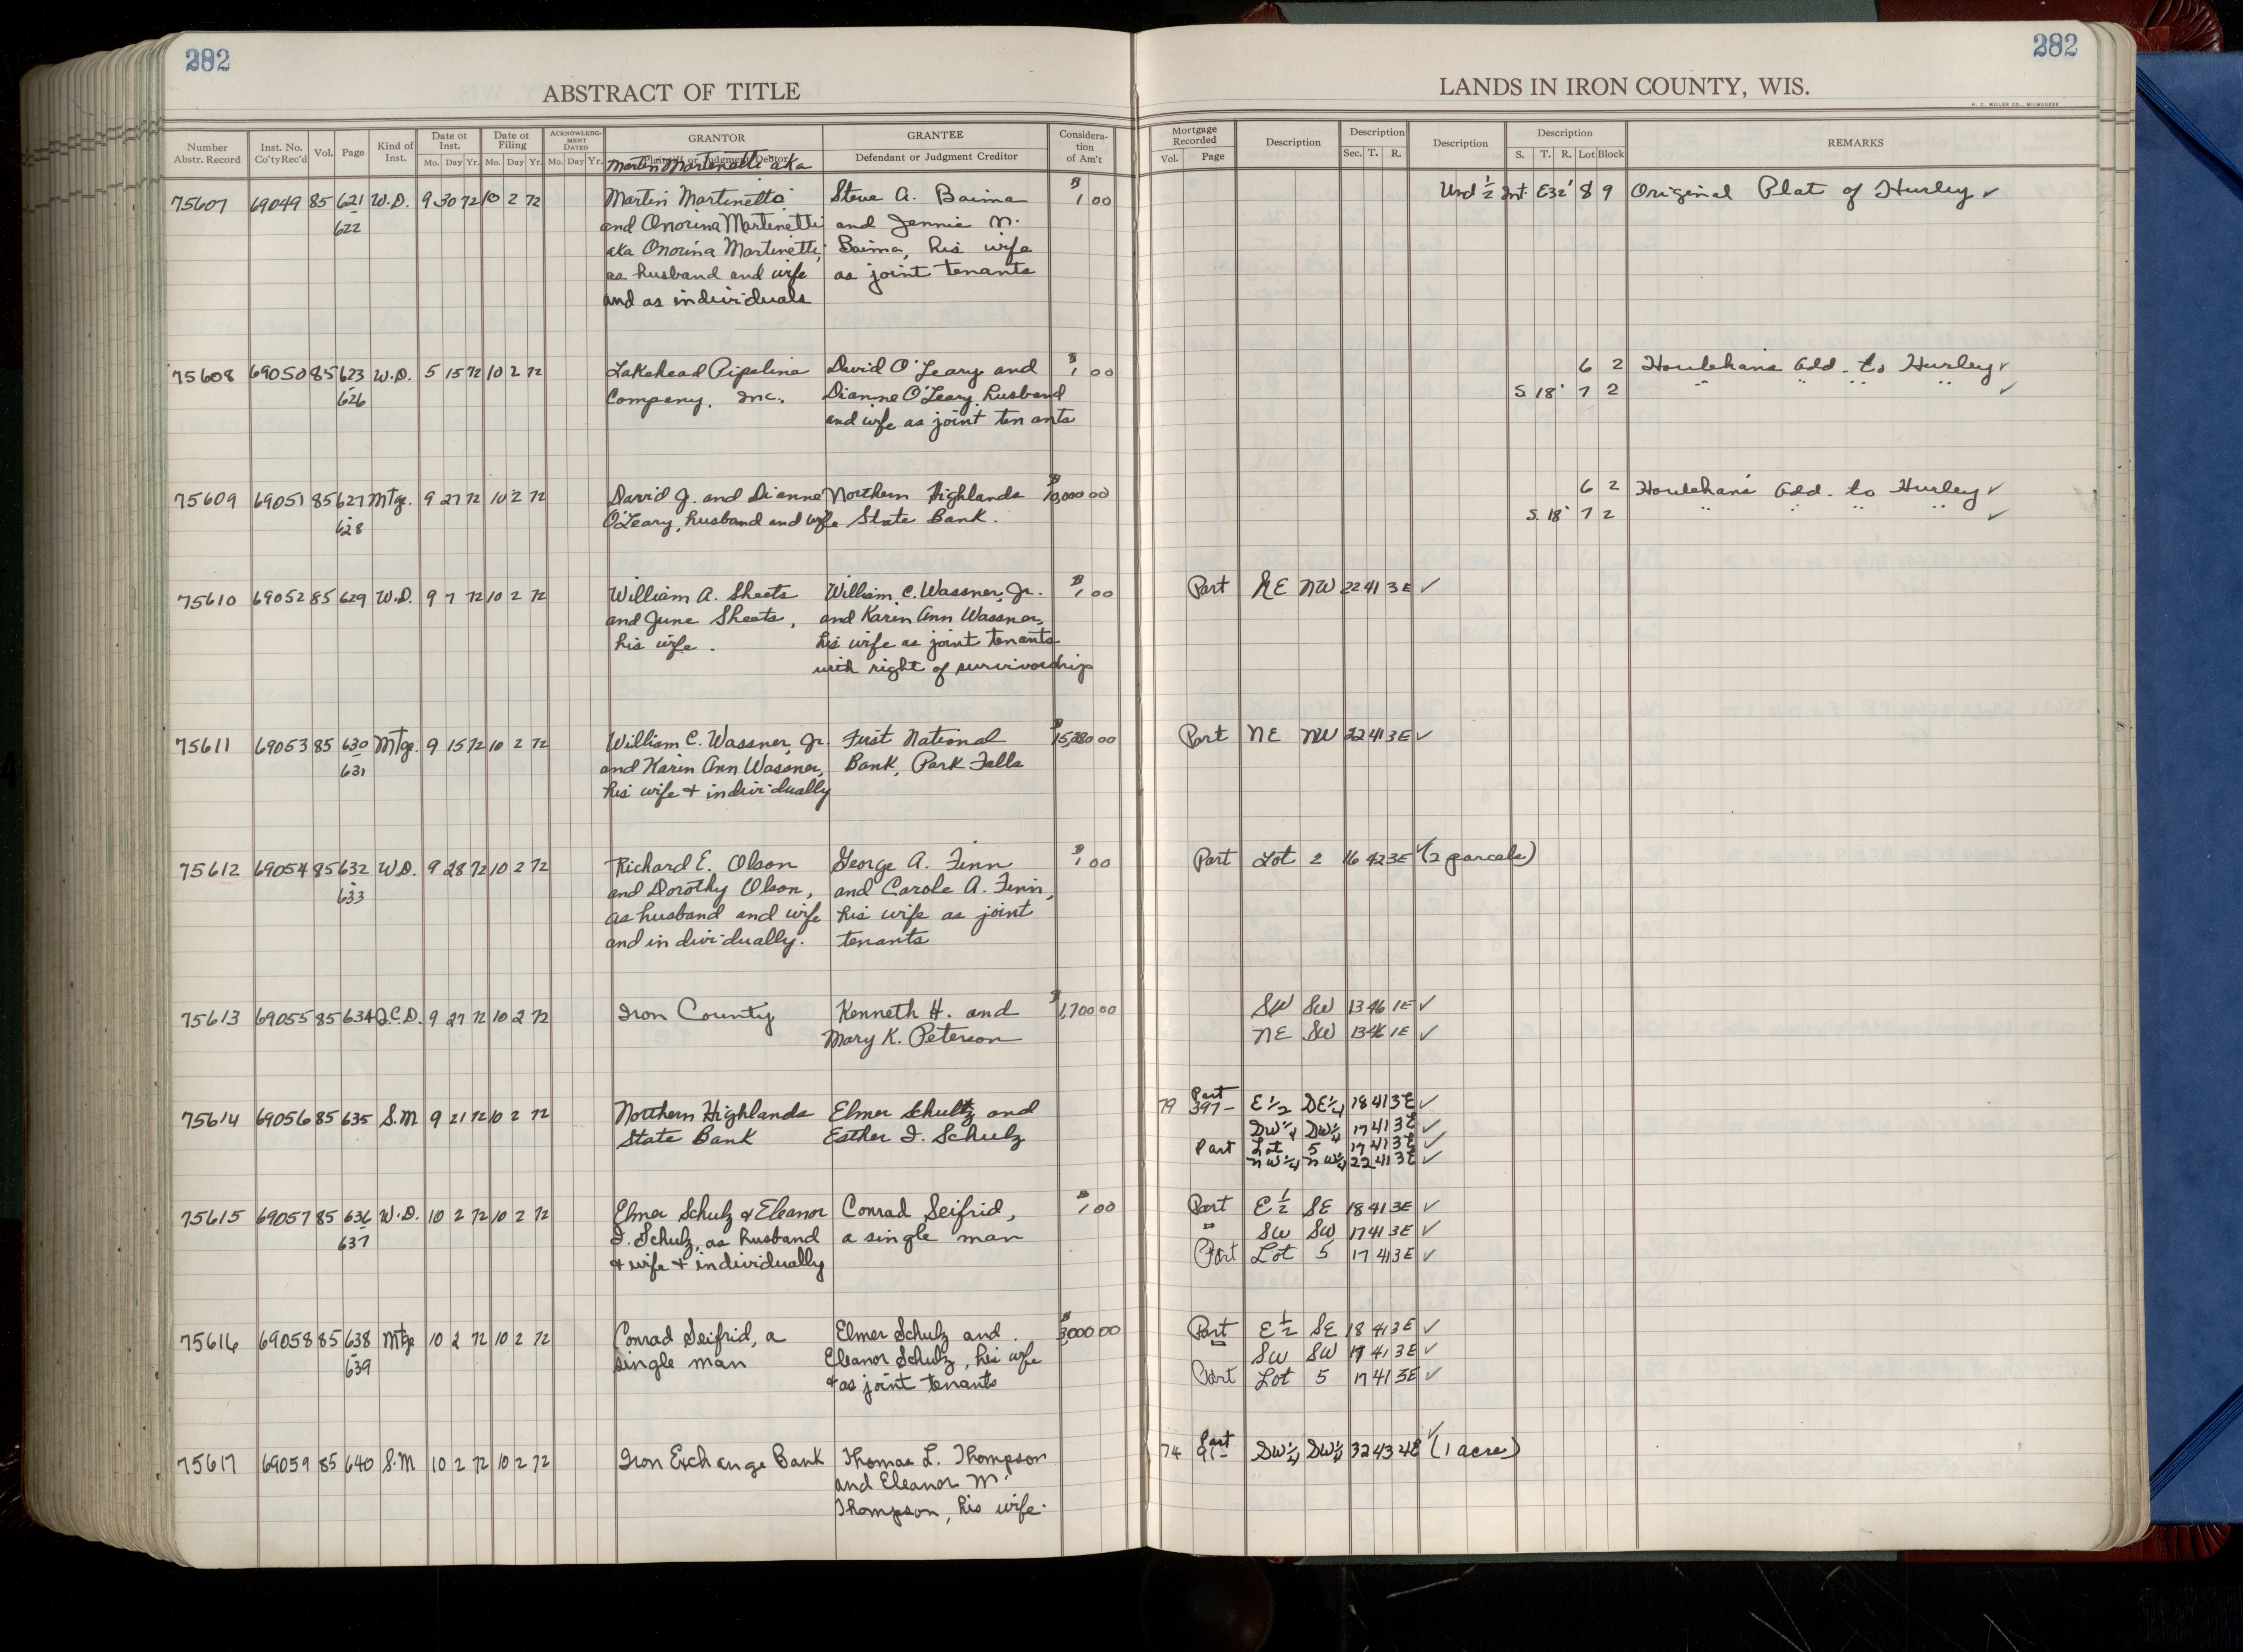 282
282
ABSTRACT OF TITLE
LANDS IN IRON COUNTY, WIS.
H. C. MILLER CO., MILWAUKEE
Number Abstr. Record | Inst. No. Co'ty Rec'd | Vol. | Page | Kind of Inst. | Date of Inst. Mo. Day Yr. | Date of Filing Mo. Day Yr. | ACKNOWLEDGMENT DATED Mo. Day Yr. | GRANTOR Plaintiff or Judgment Debtor | GRANTEE Defendant or Judgment Creditor | Consideration of Am't | Mortgage Recorded Vol. Page | Description | Description Sec. T. R. | Description | Description S. T. R. Lot Block | REMARKS
Martin Martinetti aka
75607 69049 85 621 W.D. 9 30 72 10 2 72 Martin Martinetto Steve A. Baima $1 00 Und ½ Int E32' 8 9 Original Plat of Hurley ✓
622 and Onorina Martinetti and Jennie N.
aka Onorina Martinetti, Baima, his wife
as husband and wife as joint tenants
and as individuals
75608 69050 85 623 W.D. 5 15 72 10 2 72 Lakehead Pipeline David O'Leary and $1 00 6 2 Houlehan's Add. to Hurley ✓
626 Company, Inc., Dianne O'Leary, husband S. 18' 7 2 " " " " ✓
and wife as joint tenants
75609 69051 85 627 Mtge. 9 27 72 10 2 72 David J. and Dianne Northern Highlands $10,000 00 6 2 Houlehan's Add. to Hurley ✓
628 O'Leary, husband and wife State Bank. S. 18' 7 2 " " " " ✓
75610 69052 85 629 W.D. 9 7 72 10 2 72 William A. Sheets William C. Wassner, Jr. $1 00 Part NE NW 22 41 3E ✓
and June Sheets, and Karin Ann Wassner,
his wife. his wife as joint tenants
with right of survivorship
75611 69053 85 630 Mtge. 9 15 72 10 2 72 William C. Wassner, Jr. First National 00 Part NE NW 22 41 3E ✓
631 and Karin Ann Wassner, Bank, Park Falls
his wife + individually
75612 69054 85 632 W.D. 9 28 72 10 2 72 Richard E. Olson George A. Finn $1 00 Part Lot 2 16 42 3E ✓ (2 parcels)
633 and Dorothy Olson, and Carole A. Finn,
as husband and wife his wife as joint
and individually. tenants
75613 69055 85 634 Q.C.D. 9 27 72 10 2 72 Iron County Kenneth H. and $1,700 00 SW SW 13 46 1E ✓
Mary K. Peterson NE SW 13 46 1E ✓
75614 69056 85 635 S.M. 9 21 72 10 2 72 Northern Highlands Elmer Schultz and 79 397- Part E½ SE¼ 18 41 3E ✓
State Bank Esther I. Schulz SW¼ SW¼ 17 41 3E ✓
Part Lot 5 17 41 3E ✓
NW¼ NW¼ 22 41 3E ✓
75615 69057 85 636 W.D. 10 2 72 10 2 72 Elmer Schulz & Eleanor Conrad Seifrid, $1 00 Part E½ SE 18 41 3E ✓
637 I. Schulz, as husband a single man " SW SW 17 41 3E ✓
+ wife + individually Part Lot 5 17 41 3E ✓
75616 69058 85 638 Mtge 10 2 72 10 2 72 Conrad Seifrid, a Elmer Schulz and $3000 00 Part E½ SE 18 41 3E ✓
639 single man Eleanor Schulz, his wife " SW SW 17 41 3E ✓
+ as joint tenants Part Lot 5 17 41 3E ✓
75617 69059 85 640 S.M 10 2 72 10 2 72 Iron Exchange Bank Thomas L. Thompson 74 Part SW¼ SW¼ 32 43 4E ✓ (1 acre)
and Eleanor M.
Thompson, his wife.